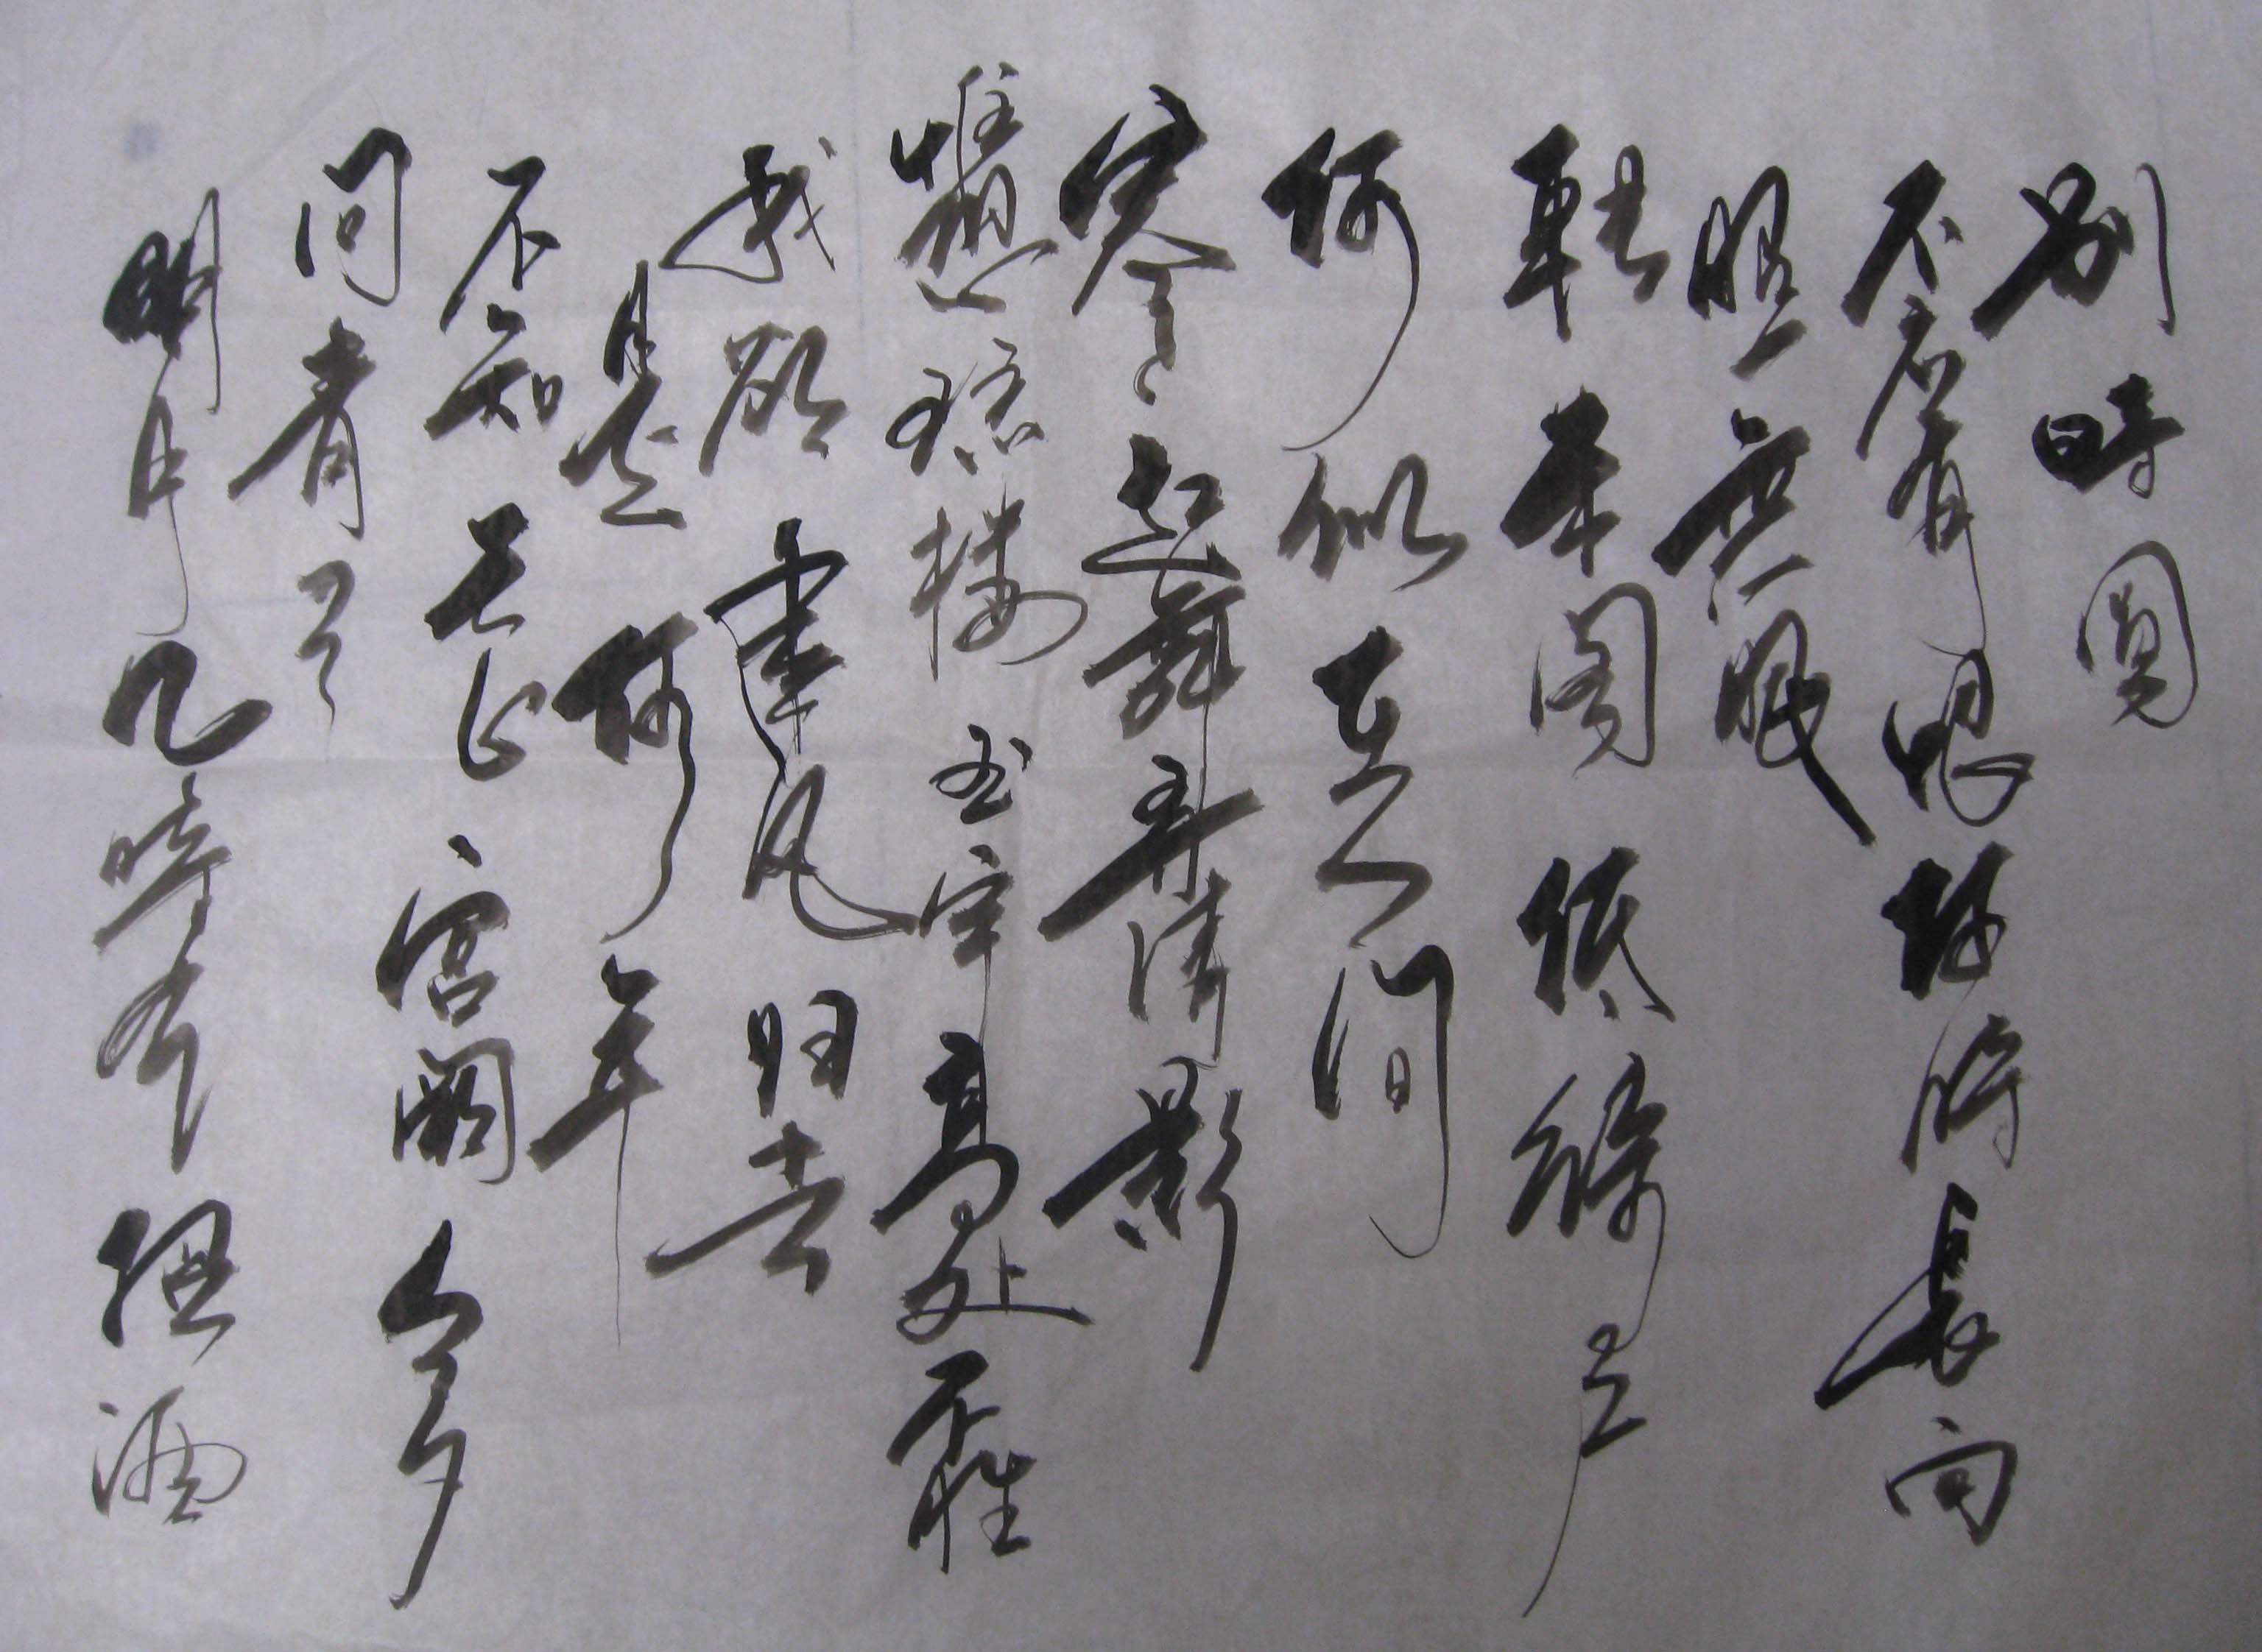 明月几時有把酒
问青天
不知天上宫阙今夕
是何年
我欲乘风归去
惟恐琼楼玉宇高处不胜
寒起舞弄清影
何似在人间
转朱阁低绮户
照無眠
不应有恨何时長向
别時圓